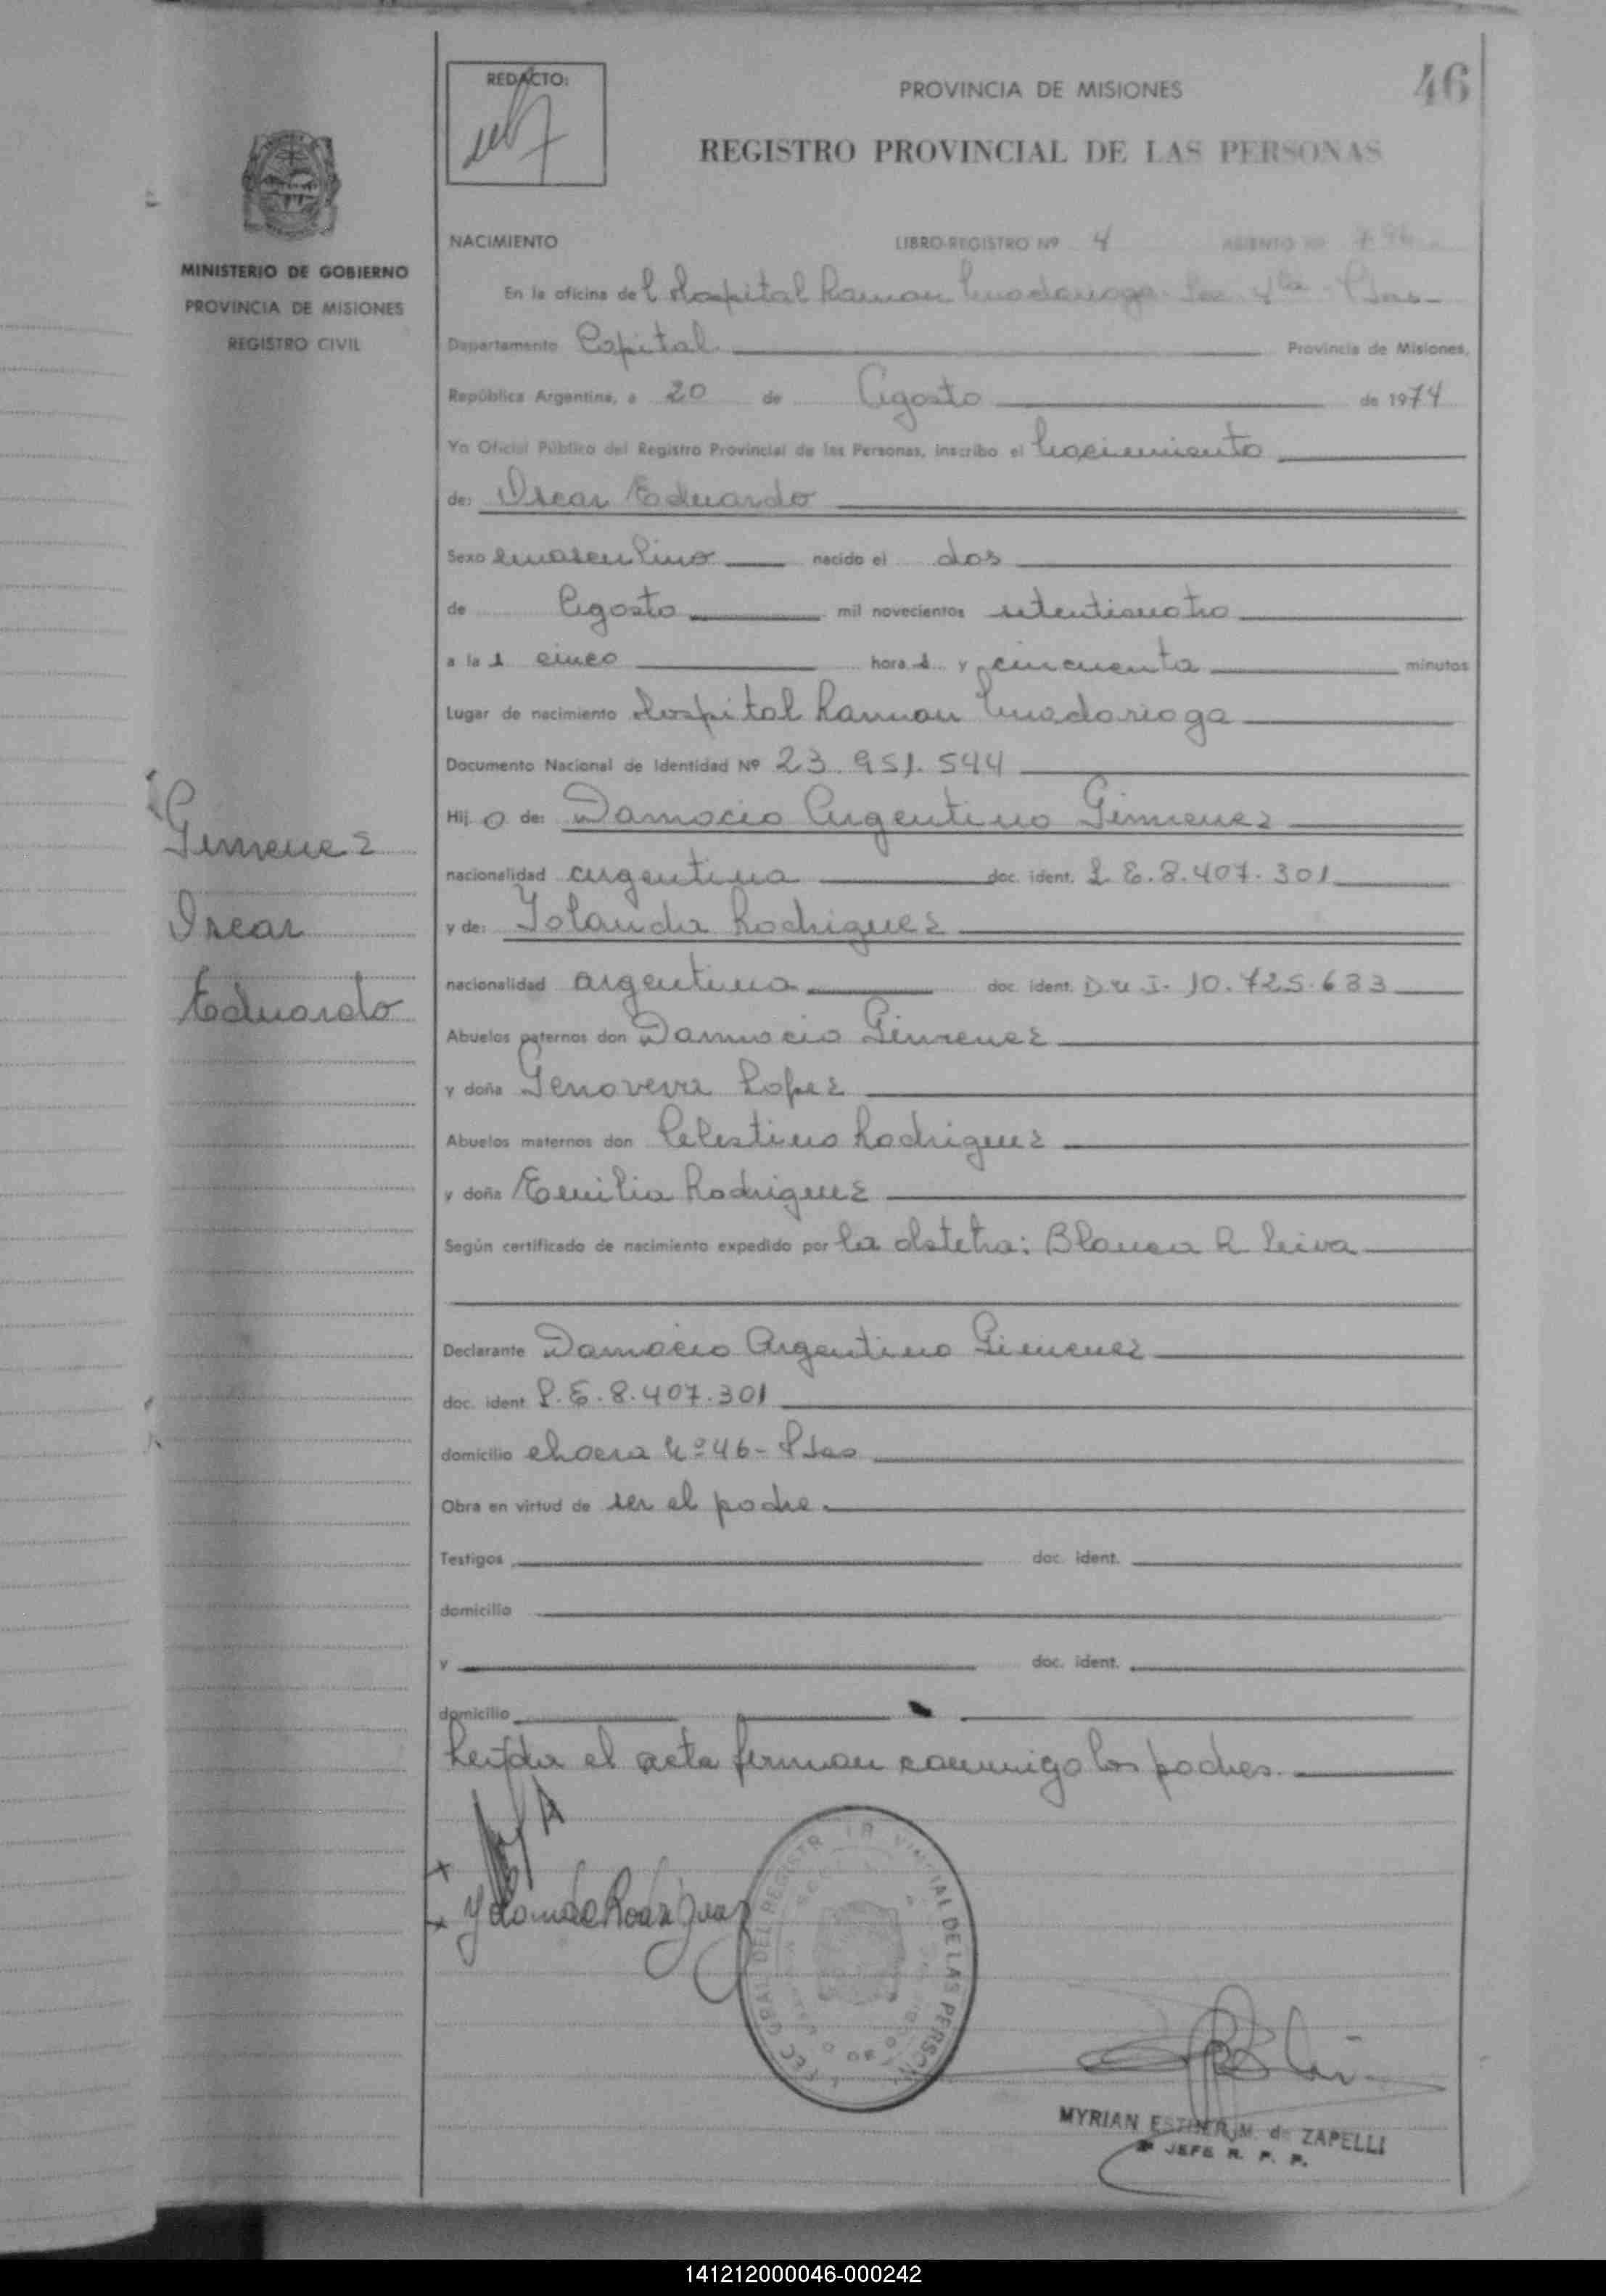 REDACTO:
PROVINCIA DE MISIONES
46
REGISTRO PROVINCIAL DE LAS PERSONAS
MINISTERIO DE GOBIERNO
PROVINCIA DE MISIONES
REGISTRO CIVIL
NACIMIENTO LIBRO-REGISTRO Nº 4 ASIENTO Nº
En la oficina del Hospital Ramon Madariaga Sec 4ta Pdas
Departamento Capital Provincia de Misiones,
República Argentina, a 20 de Agosto de 1974
Yo Oficial Público del Registro Provincial de las Personas, inscribo el Nacimiento
de: Oscar Eduardo
Sexo masculino nacido el dos
de Agosto mil novecientos setenticuatro
a las cinco horas y cincuenta minutos
Lugar de nacimiento Hospital Ramon Madariaga
Documento Nacional de Identidad Nº 23.951.544
Hijo de: Damacio Argentino Gimenez
nacionalidad argentina doc. ident. L.E.8.407.301
y de: Yolanda Rodriguez
nacionalidad argentina doc. ident. D.N.I. 10.725.633
Abuelos paternos don Damacio Gimenez
y doña Genoveva Lopez
Abuelos maternos don Celestino Rodriguez
y doña Emilia Rodriguez
Según certificado de nacimiento expedido por la obstetra: Blanca R Leiva
Declarante Damacio Argentino Gimenez
doc. ident. L.E.8.407.301
domicilio chacra Nº 46 - Pdas
Obra en virtud de ser el padre.
Testigos doc. ident.
domicilio
y doc. ident.
domicilio
Leída el acta firman conmigo los padres.
Gimenez
Oscar
Eduardo
Yolanda Rodriguez
MYRIAN ESTHER M. de ZAPELLI
JEFE R. P. P.
141212000046-000242